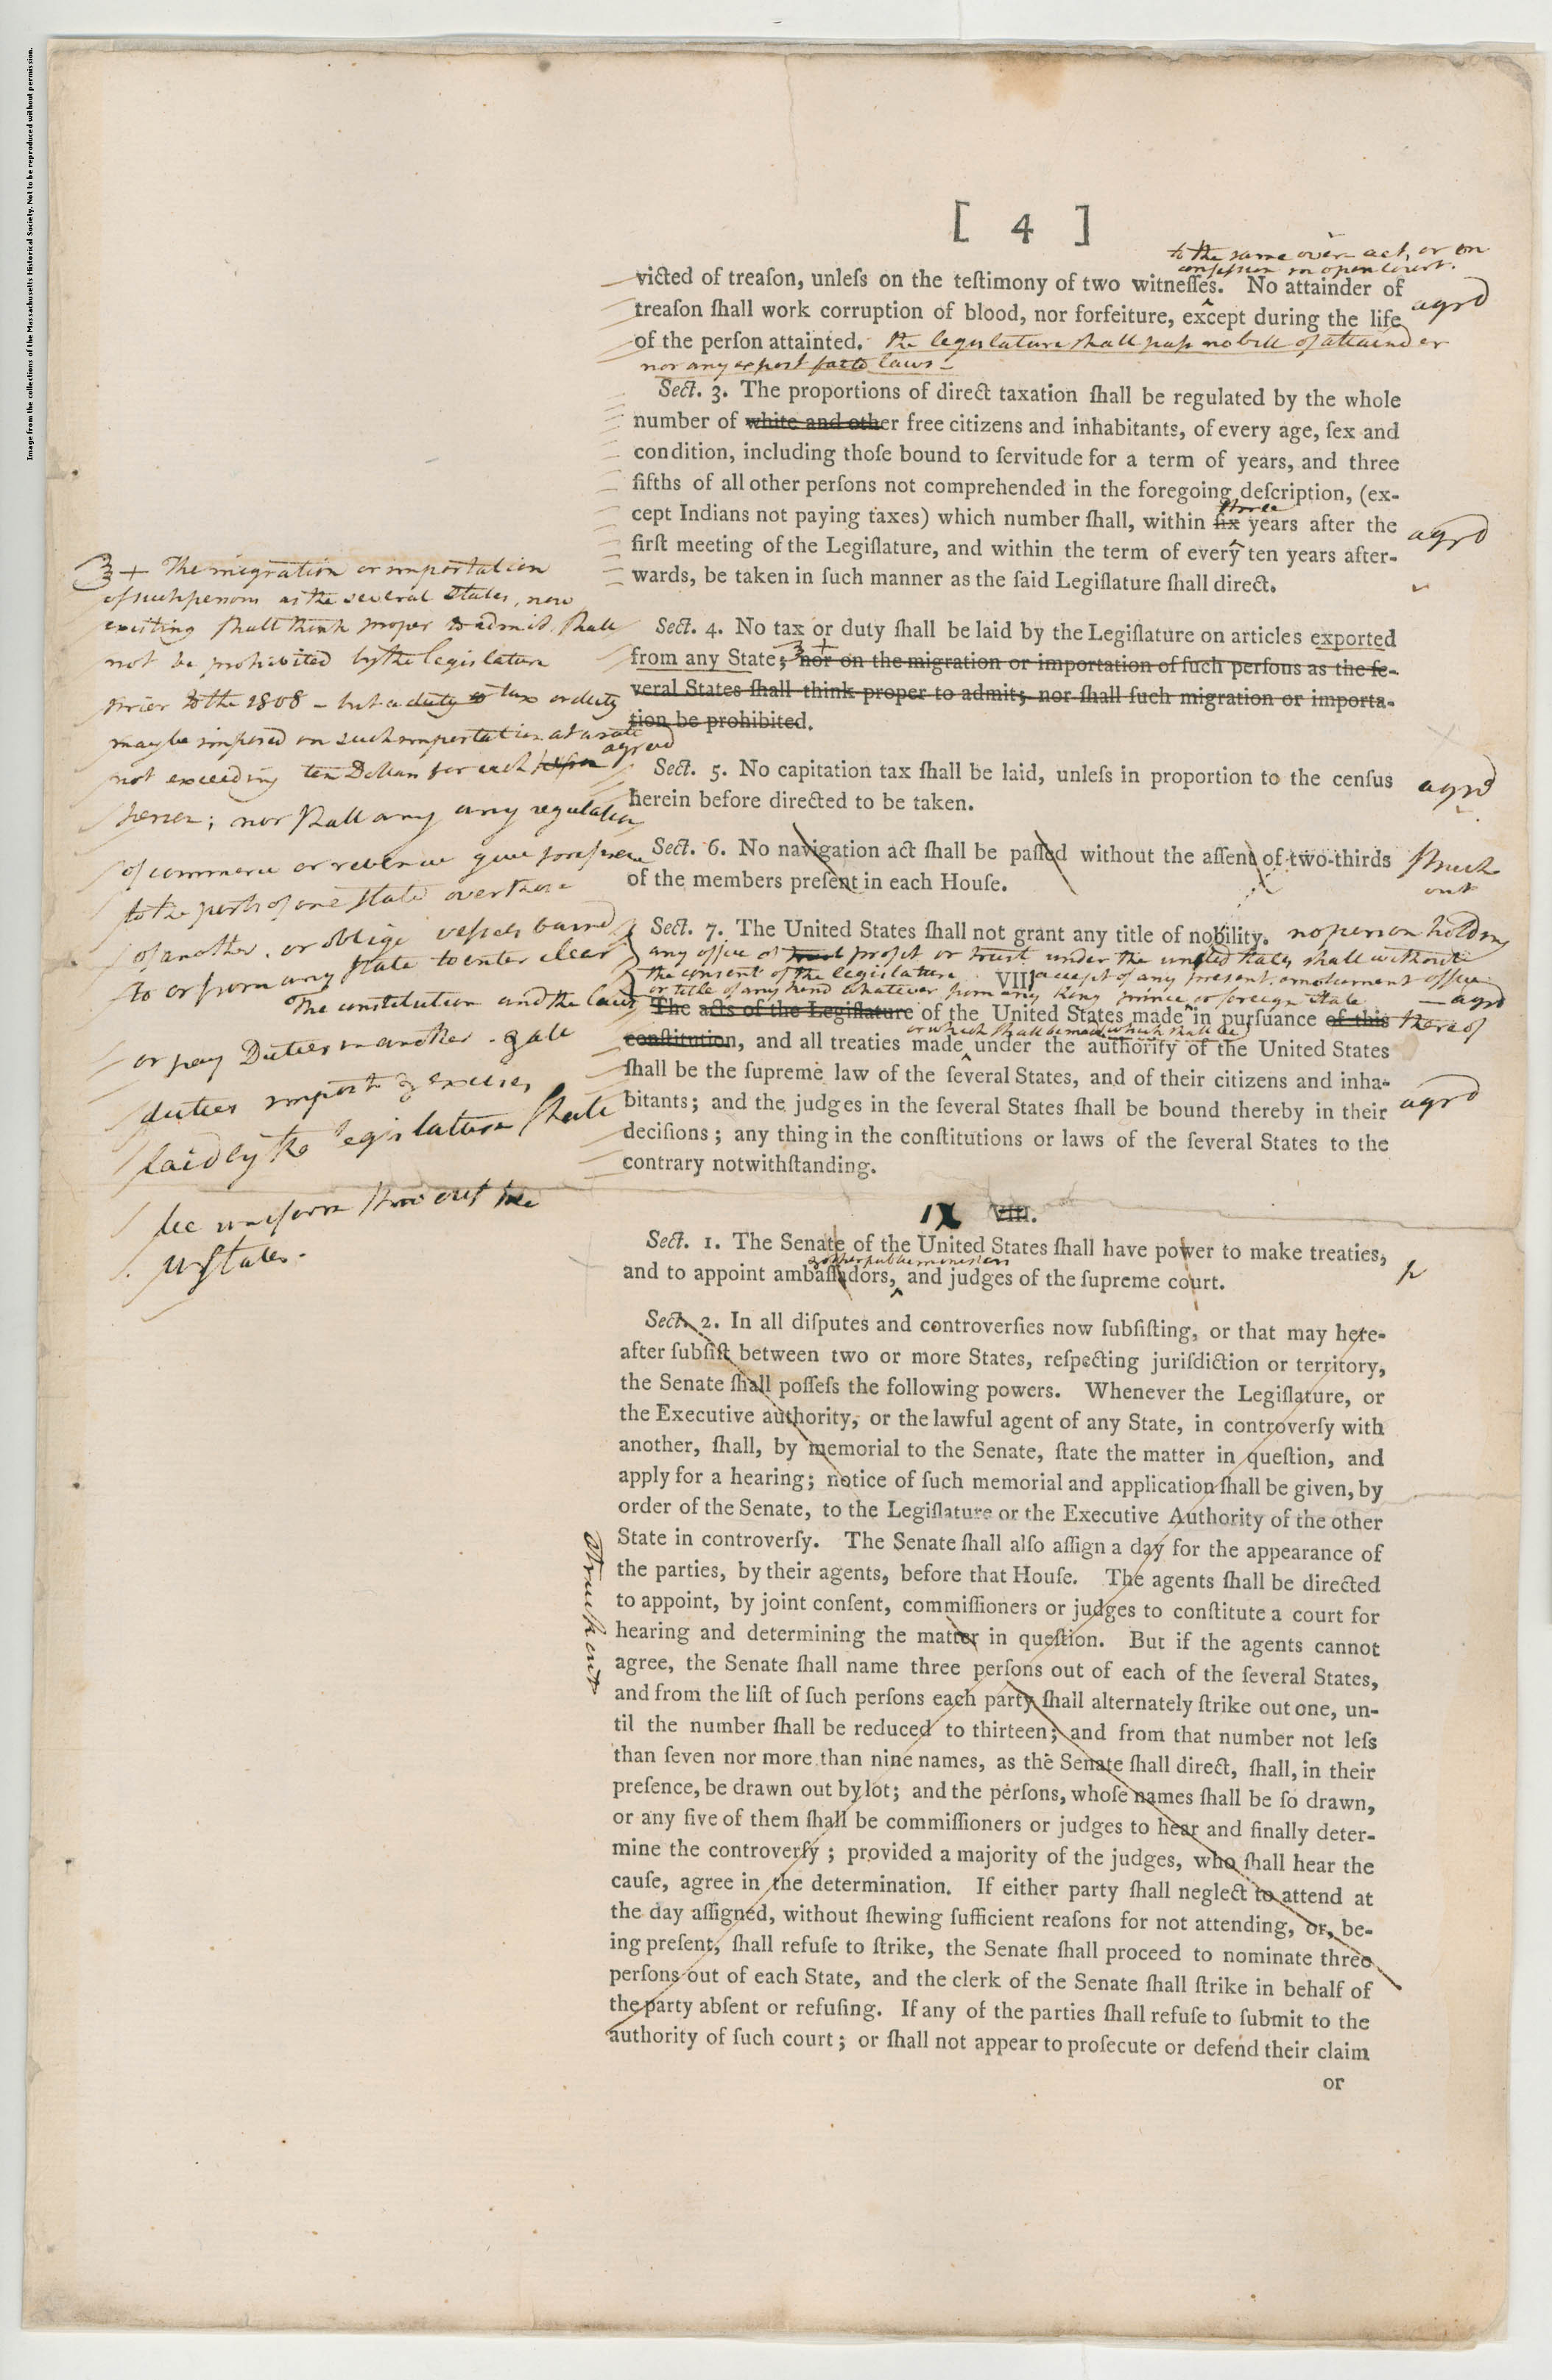 Image from the collections of the Massachusetts Historical Society. Not to be reproduced without permission.
[ 4 ]
to the same over act, or on
confession in open court.
victed of treaſon, unleſs on the teſtimony of two witneſſes. ‸ No attainder of
treaſon ſhall work corruption of blood, nor forfeiture, except during the life
agrd
of the perſon attainted. the legislature shall pass no bill of attainder
nor any expost facto laws –
Sect. 3. The proportions of direct taxation ſhall be regulated by the whole
number of white and other free citizens and inhabitants, of every age, ſex and
condition, including thoſe bound to ſervitude for a term of years, and three
fifths of all other perſons not comprehended in the foregoing deſcription, (ex-
three
cept Indians not paying taxes) which number ſhall, within ſix years after the
agrd
firſt meeting of the Legiſlature, and within the term of every ten years after-
wards, be taken in ſuch manner as the ſaid Legiſlature ſhall direct.
Sect. 4. No tax or duty ſhall be laid by the Legiſlature on articles exported
3 +
from any State; nor on the migration or importation of ſuch perſons as the ſe-
veral States ſhall think proper to admit; nor ſhall ſuch migration or importa-
tion be prohibited.
3 + The migration or importation
of such persons as the several States, now
existing shall think proper to admit, shall
not be prohibited by the legislature
prior to the 1808 – but a duty or tax or duty
may be imposed on such importation at a rate
agreed
not exceeding ten Dollars for each person
person; nor shall any any regulation
of commerce or revenue give preference
to the ports of one state over those
of another. or oblige vessels bound
to or from any state to enter clear
or pay Duties in another.
duties imposts & excises,
laid by the legislature shall
be uniform thro out the
U States.
Sect. 5. No capitation tax ſhall be laid, unleſs in proportion to the cenſus
agrd
herein before directed to be taken.
Sect. 6. No navigation act ſhall be paſſed without the aſſent of two-thirds
struck
out
of the members preſent in each Houſe.
Sect. 7. The United States ſhall not grant any title of nobility. no person holding
any office of trust profit or trust under the united states shall without
the consent of the legislature accept of any present, emolument office
VII
or title of any kind whatever from any King prince or foreign State
– agrd
The constitution and the laws
The acts of the Legiſlature of the United States made ‸ in purſuance of this thereof
or which shall be made which shall be
conſtitution, and all treaties made ‸ under the authority of the United States
ſhall be the ſupreme law of the ſeveral States, and of their citizens and inha-
bitants; and the judges in the ſeveral States ſhall be bound thereby in their
agrd
deciſions; any thing in the conſtitutions or laws of the ſeveral States to the
contrary notwithſtanding.
IX VIII.
Sect. 1. The Senate of the United States ſhall have power to make treaties,
& other public ministers
and to appoint ambaſſadors, ‸ and judges of the ſupreme court.
Sect. 2. In all diſputes and controverſies now ſubſiſting, or that may here-
after ſubſiſt between two or more States, reſpecting juriſdiction or territory,
the Senate ſhall poſſeſs the following powers. Whenever the Legiſlature, or
the Executive authority, or the lawful agent of any State, in controverſy with
another, ſhall, by memorial to the Senate, ſtate the matter in queſtion, and
apply for a hearing; notice of ſuch memorial and application ſhall be given, by
order of the Senate, to the Legiſlature or the Executive Authority of the other
State in controverſy. The Senate ſhall alſo aſſign a day for the appearance of
the parties, by their agents, before that Houſe. The agents ſhall be directed
to appoint, by joint conſent, commiſſioners or judges to conſtitute a court for
hearing and determining the matter in queſtion. But if the agents cannot
agree, the Senate ſhall name three perſons out of each of the ſeveral States,
and from the liſt of ſuch perſons each party ſhall alternately ſtrike out one, un-
til the number ſhall be reduced to thirteen; and from that number not leſs
than ſeven nor more than nine names, as the Senate ſhall direct, ſhall, in their
preſence, be drawn out by lot; and the perſons, whoſe names ſhall be ſo drawn,
or any five of them ſhall be commiſſioners or judges to hear and finally deter-
mine the controverſy; provided a majority of the judges, who ſhall hear the
cauſe, agree in the determination. If either party ſhall neglect to attend at
the day aſſigned, without ſhewing ſufficient reaſons for not attending, or, be-
ing preſent, ſhall refuſe to ſtrike, the Senate ſhall proceed to nominate three
perſons out of each State, and the clerk of the Senate ſhall ſtrike in behalf of
the party abſent or refuſing. If any of the parties ſhall refuſe to ſubmit to the
authority of ſuch court; or ſhall not appear to proſecute or defend their claim
or
Struck out